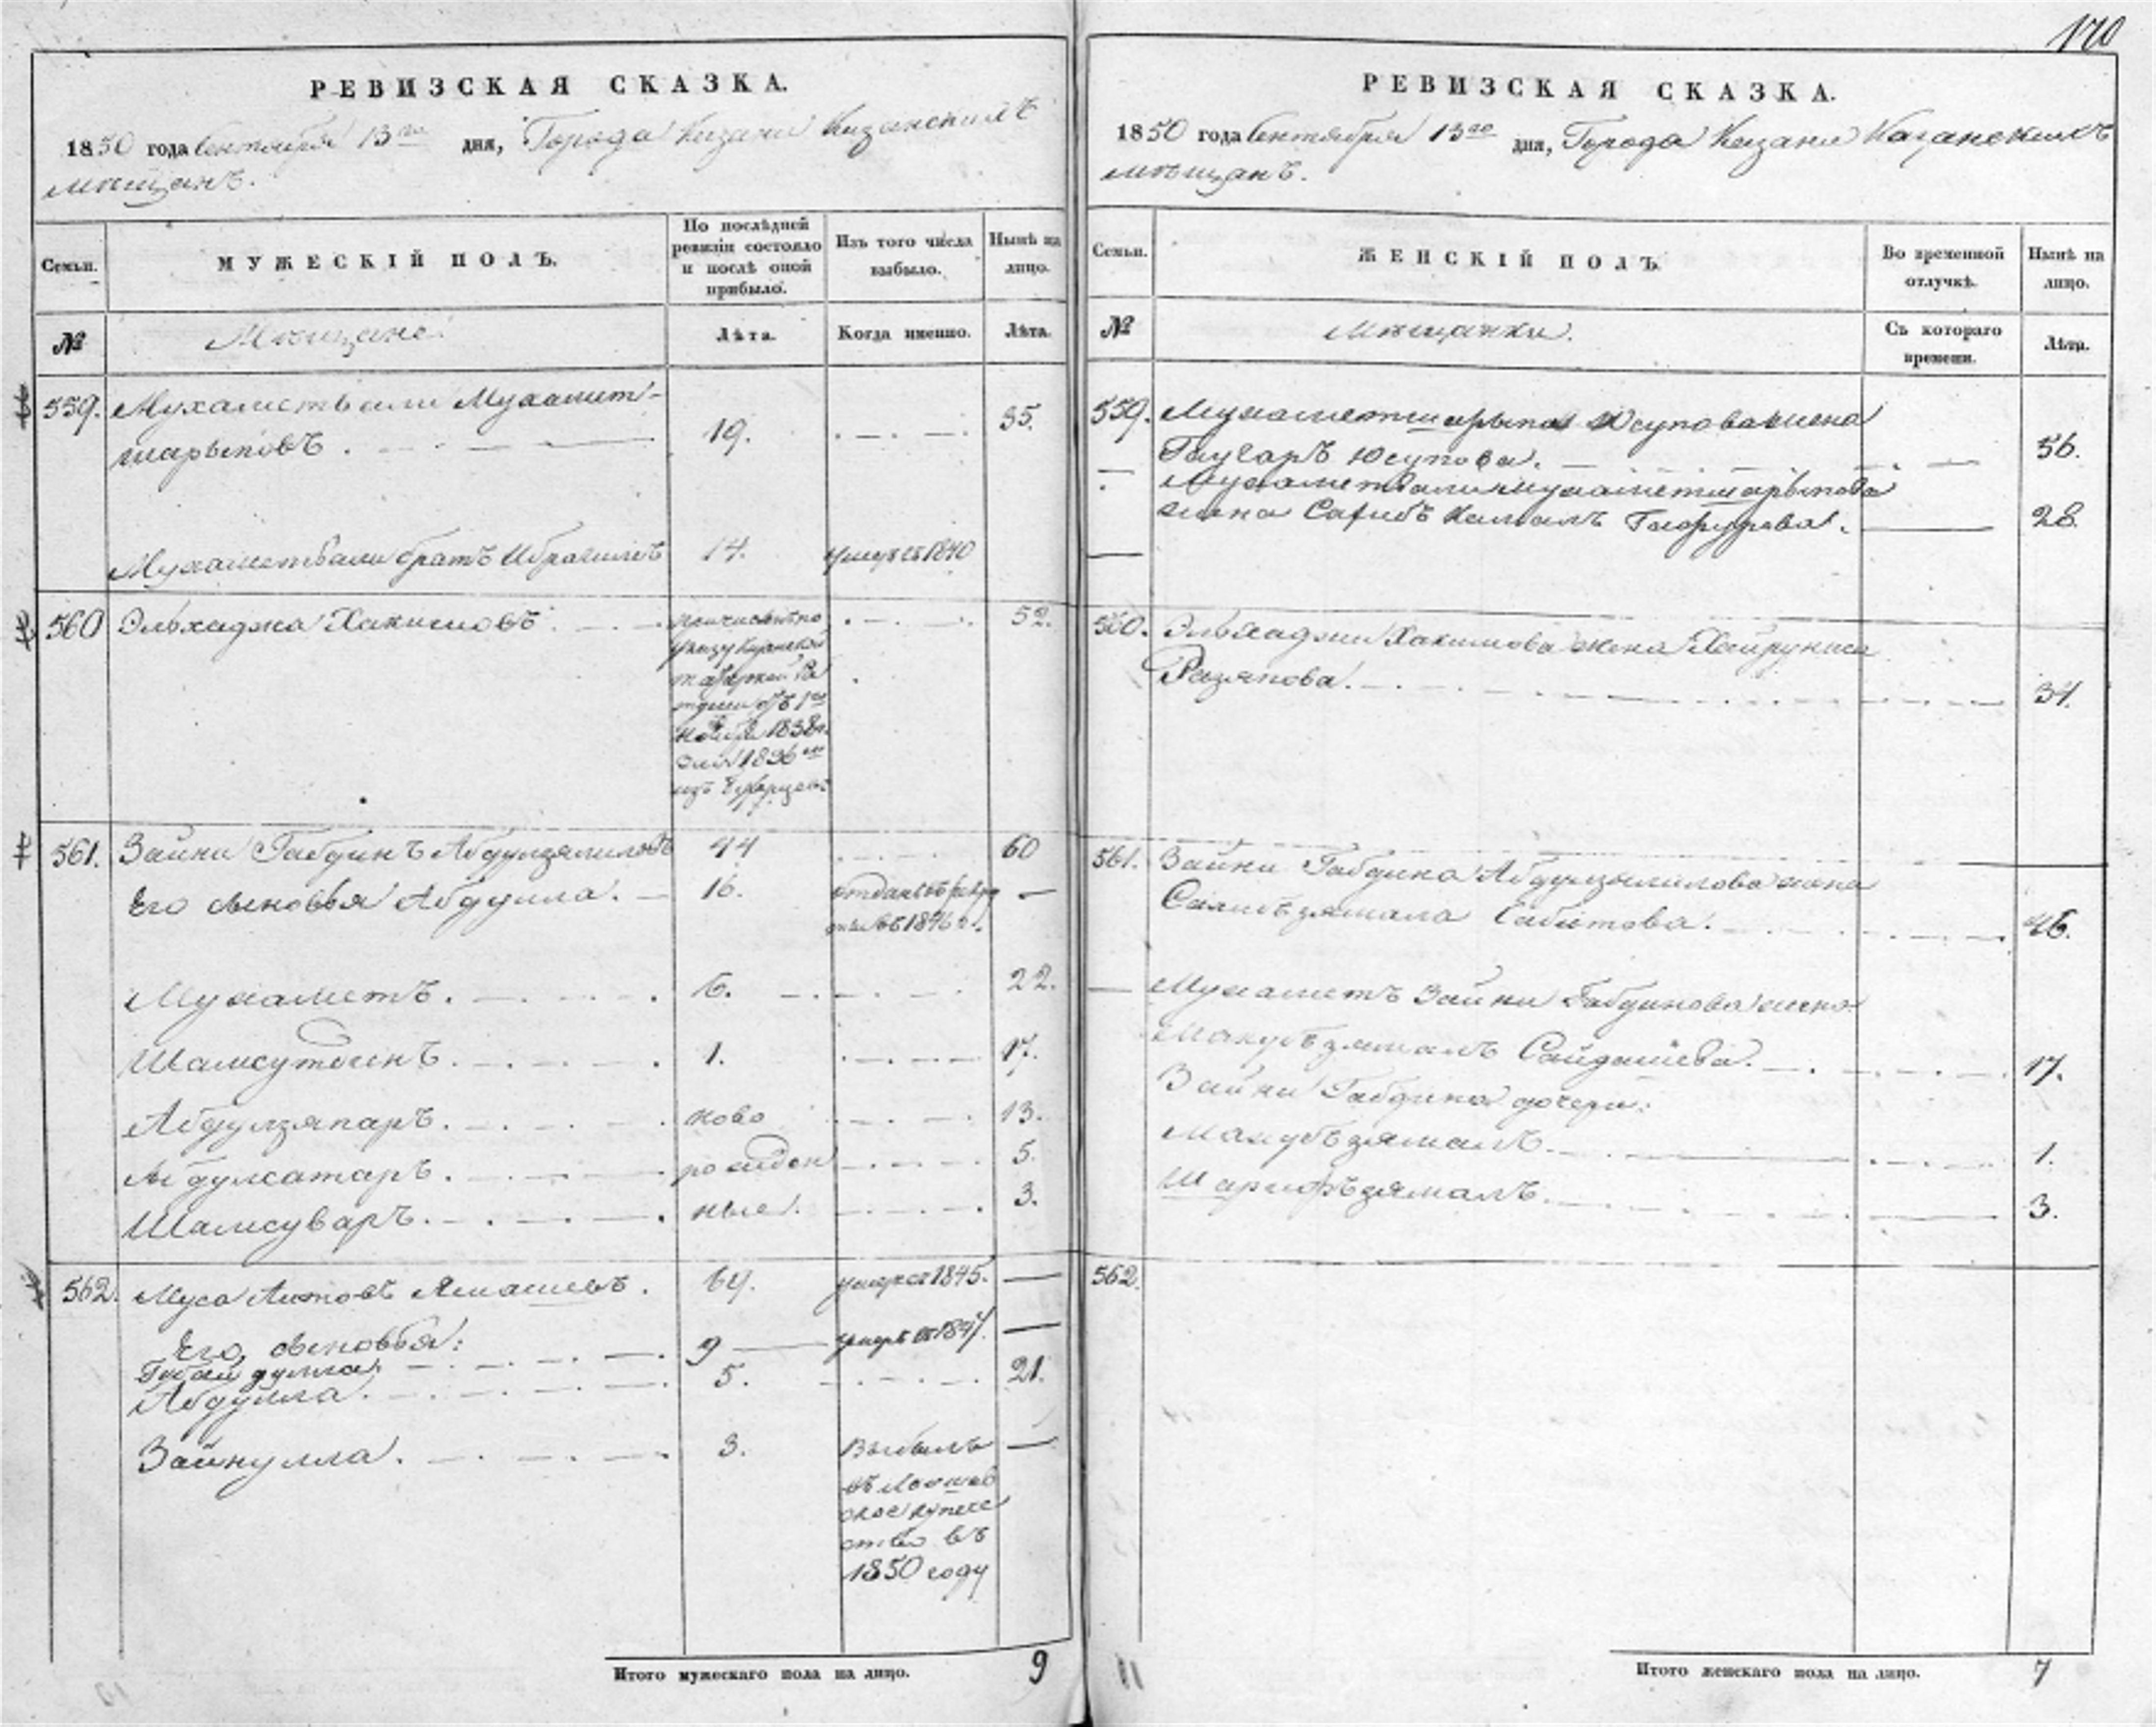 170
РЕВИЗСКАЯ СКАЗКА.
1850 года Сентября 13го дня, Города Казани Казанскихъ
мѣщанъ.
Семьи.
МУЖЕСКІЙ ПОЛЪ.
По послѣдней
ревизіи состояло
и послѣ оной
прибыло.
Изъ того числа
выбыло.
Нынѣ на
лицо.
№
Мѣщане
Лѣта.
Когда именно.
Лѣта.
559. Мухаметвали Мухамет-
шарыповъ. 19. 35.
Мухаметвали братъ Ибрагимъ 14. умеръ въ 1840
560 Эльхаджа Хакимовъ 52.
причисленъ по
указу Казанской
татарской Ра
туши отъ 1го
Ноября 1838 г.
за № 1896м
изъ Бухарцевъ
561. Зайни Габдинъ Абдулзялиловъ 44 60
Его сыновья Абдулла. 16. отданъ въ рекру
ты въ 1846 г. —
Мухаметъ. 6. 22.
Шамсутдинъ. 1. 17.
Абдулзяпаръ. ново 13.
Абдулсатаръ. рожден 5.
Шамсуваръ. ные. 3.
562. Муса Аитовъ Ямашевъ. 64. умеръ въ 1845. —
Его сыновья:
Губайдулла. 9 — умеръ въ 1847. —
Абдулла. 5. 21.
Зайнулла. 3. Выбылъ —
въ
ское купече
ство въ
1850 году
Итого мужескаго пола на лицо. 9
РЕВИЗСКАЯ СКАЗКА.
1850 года Сентября 13го дня, Города Казани Казанскихъ
мѣщанъ.
Семьи.
ЖЕНСКІЙ ПОЛЪ.
Во временной
отлучкѣ.
Нынѣ на
лицо.
№
Мѣщанки.
Съ котораго
времени.
Лѣта.
559. Мухаметшарыпа Юсупова жена
Гаугаръ Юсупова. — 56.
Мухаметвали Мухаметшарыпова
жена Сагибъ Камалъ Гафурова. — 28.
560. Эльхаджи Хакимова жена Хайруниса
Разяпова. 34.
561. Зайни Габдина Абдулзялилова жена
Сахибъзямала Сабитова. 46.
Мухаметъ Зайни Габдинова жена
Махубъзямалъ Сайдашева. 17.
Зайни Габдина дочери:
Махубъзямалъ. 1.
Шарифъзямалъ. 3.
562.
Итого женскаго пола на лицо. 7